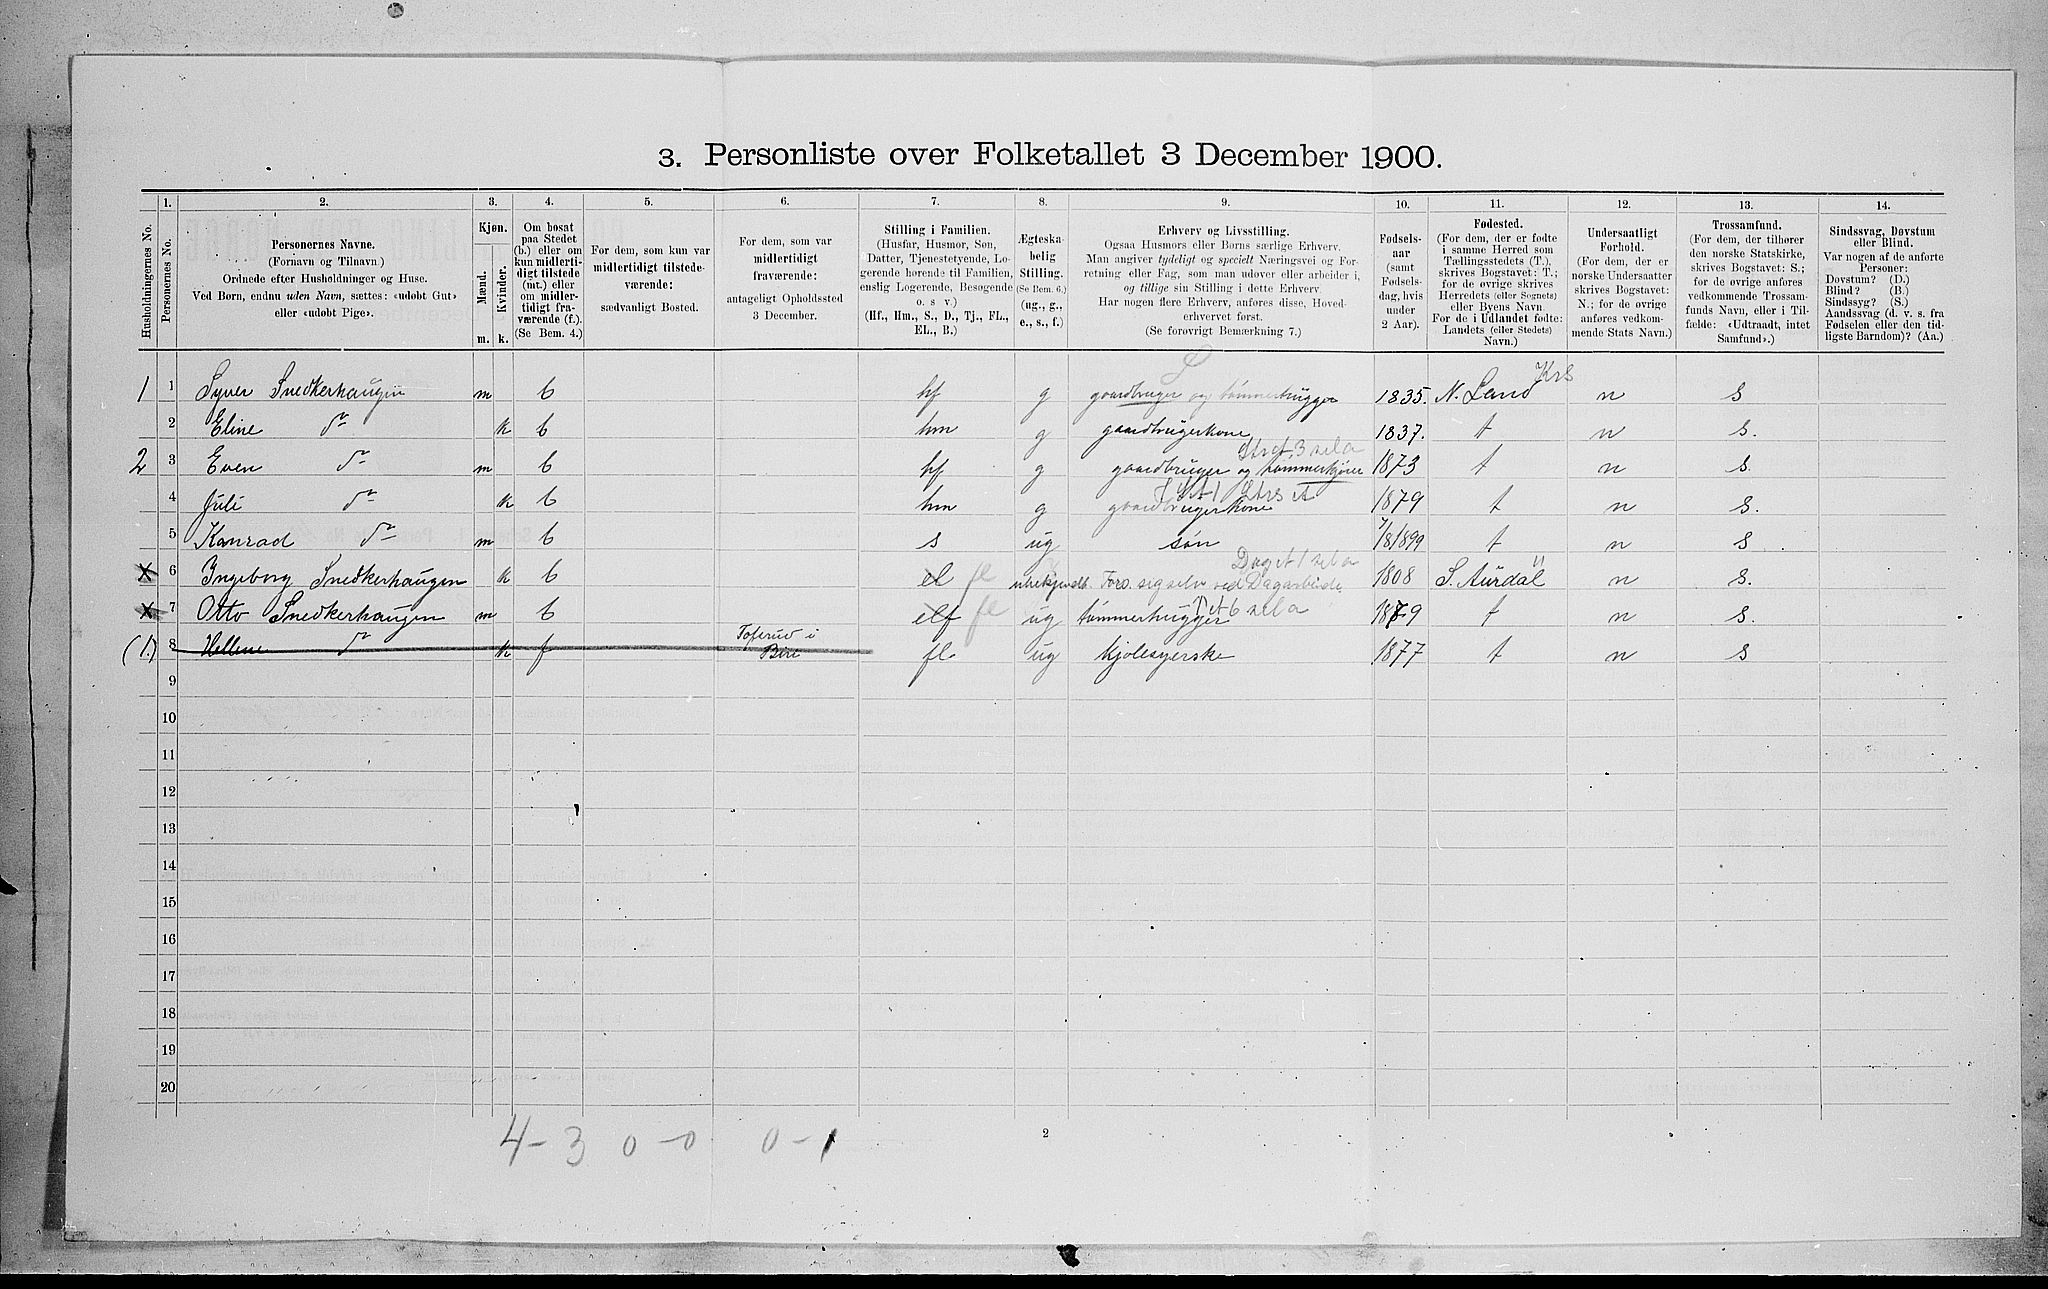 3. Personliste over Folketallet 3 December 1900.
1. 2. 3. 4. 5. 6. 7. 8. 9. 10. 11. 12. 13. 14.
Husholdningernes No.
Personernes No.
Personernes Navne.
(Fornavn og Tilnavn.)
Ordnede efter Husholdninger og Huse.
Ved Børn, endnu uden Navn, sættes: «udøbt Gut»
eller «udøbt Pige».
Kjøn.
Mænd.
Kvinder.
m. k.
Om bosat
paa Stedet
(b.) eller om
kun midlerti-
digt tilstede
(mt.) eller
om midler-
tidigt fra-
værende (f.).
(Se Bem. 4.)
For dem, som kun var
midlertidigt tilstede-
værende:
sædvanligt Bosted.
For dem, som var
midlertidigt
fraværende:
antageligt Opholdssted
3 December.
Stilling i Familien.
(Husfar, Husmor, Søn,
Datter, Tjenestetyende, Lo-
gerende hørende til Familien,
enslig Logerende, Besøgende
o. s v.)
(Hf., Hm., S., D., Tj., FL.,
EL., B.)
Ægteska-
belig
Stilling.
(Se Bem. 6.)
(ug., g.,
e., s., f.)
Erhverv og Livsstilling.
Ogsaa Husmors eller Børns særlige Erhverv.
Man angiver tydeligt og specielt Næringsvei og For-
retning eller Fag, som man udøver eller arbeider i,
og tillige sin Stilling i dette Erhverv.
Har nogen flere Erhverv, anføres disse, Hoved-
erhvervet først.
(Se forøvrigt Bemærkning 7.)
Fødsels-
aar
(samt
Fødsels-
dag, hvis
under
2 Aar).
Fødested.
(For dem, der er fødte
i samme Herred som
Tællingsstedets (T.),
skrives Bogstavet: T.;
for de øvrige skrives
Herredets (eller Sognets)
eller Byens Navn.
For de i Udlandet fødte:
Landets (eller Stedets)
Navn.)
Undersaatligt
Forhold.
(For dem, der er
norske Undersaatter
skrives Bogstavet:
N.; for de øvrige
anføres vedkom-
mende Stats Navn.)
Trossamfund.
(For dem, der tilhører
den norske Statskirke,
skrives Bogstavet: S.;
for de øvrige anføres
vedkommende Trossam-
funds Navn, eller i Til-
fælde: «Udtraadt, intet
Samfund».)
Sindssvag, Døvstum
eller Blind.
Var nogen af de anførte
Personer:
Døvstum? (D.)
Blind? (B.)
Sindssyg? (S.)
Aandssvag (d. v. s. fra
Fødselen eller den tid-
ligste Barndom)? (Aa.)
Krs
1 1 Syver Snedkerhaugen m b hf g gaardbruger og tømmerhugger 1835. N. Land n s
2 Eline do k b hm g gaardbrugerkone 1837. t n s.
2 3 Even do m b hf g gaardbruger og tømmerkjører 1873 t n s.
4 Juli do k b hm g gaardbrugerkone 1879 t n s.
5 Konrad do m b s ug søn 7/8 1899 t n s
x 6 Ingeborg Snedkerhaugen k b el fl Fors. sig selv ved Dagarbeide 1808 S. Aurdal n s.
x 7 Otto Snedkerhaugen m b elf fl ug tømmerhugger 1879 t n s.
Toferud i
(1.) 8 Helene do k f Biri fl ug kjolesyerske 1877 t n s
9
10
11
12
13
14
15
16
17
18
19
20
4-3 0-0 0-1
2